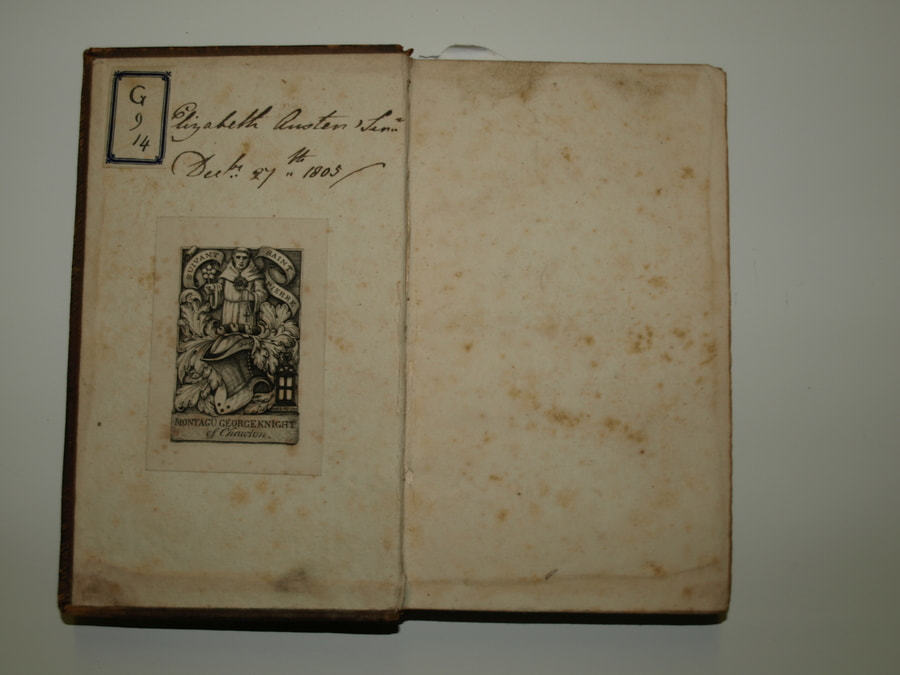 G
9
14
Elizabeth Austen Senr
Decbr. 27th 1805
SUIVANT SAINT PIERRE
MONTAGU GEORGE KNIGHT
of Chawton.